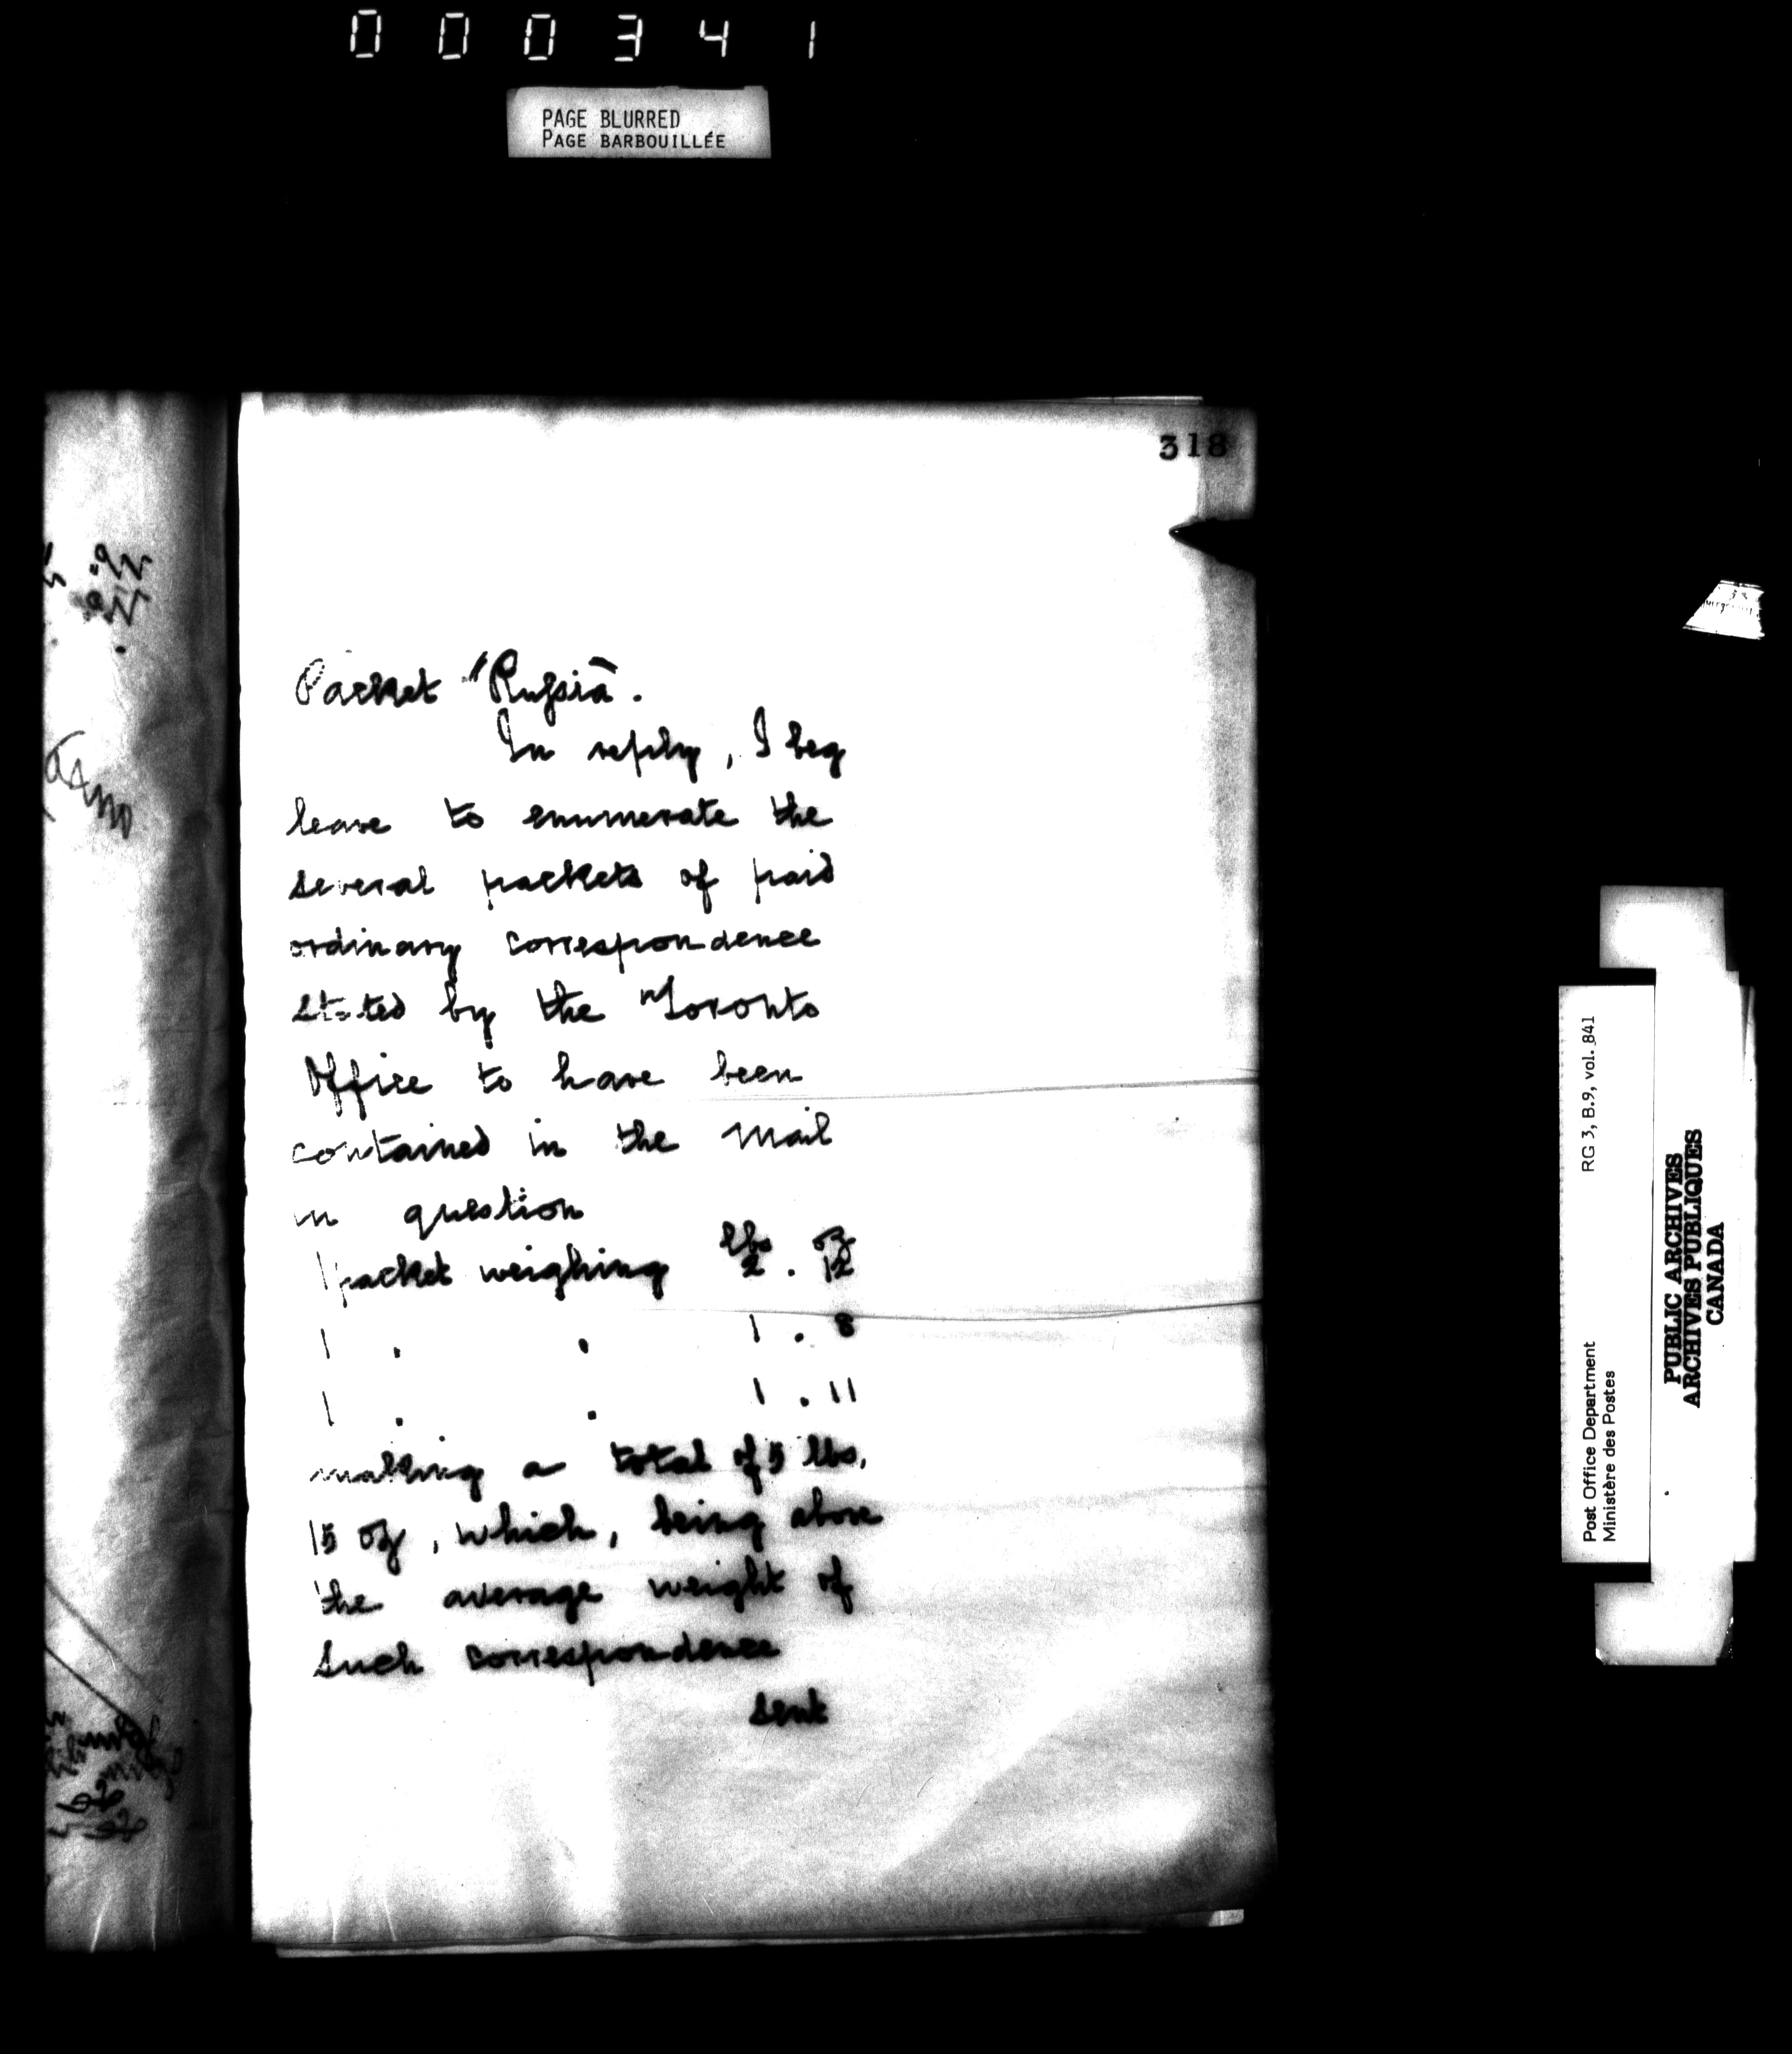 000341
PAGE BLURRED
PAGE BARBOUILLÉE
318
Packet "Russia".
In reply, I beg
leave to enumerate the
several packets of paid
ordinary correspondence
stated by the Toronto
Office to have been
contained in the Mail
in question
lbs oz
1 packet weighing 2 . 12
1 . . 1 . 8
1 . . 1 . 11
making a total of 5 lbs.
15 oz, which, being above
the average weight of
such correspondence
sent
RG 3, B.9, vol. 841
Post Office Department
Ministère des Postes
PUBLIC ARCHIVES
ARCHIVES PUBLIQUES
CANADA